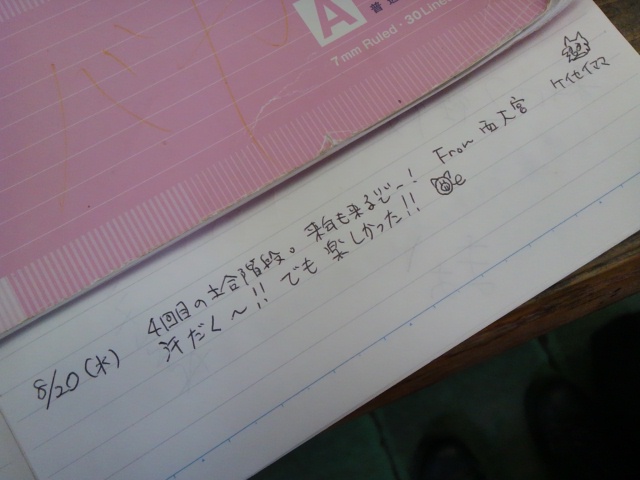 A
7mm Ruled・30 Lines
8/20(水) 4回目の土合階段。来年も来るぞー! From 西大宮 ケイセイママ
汗だく〜!! でも楽しかった!!